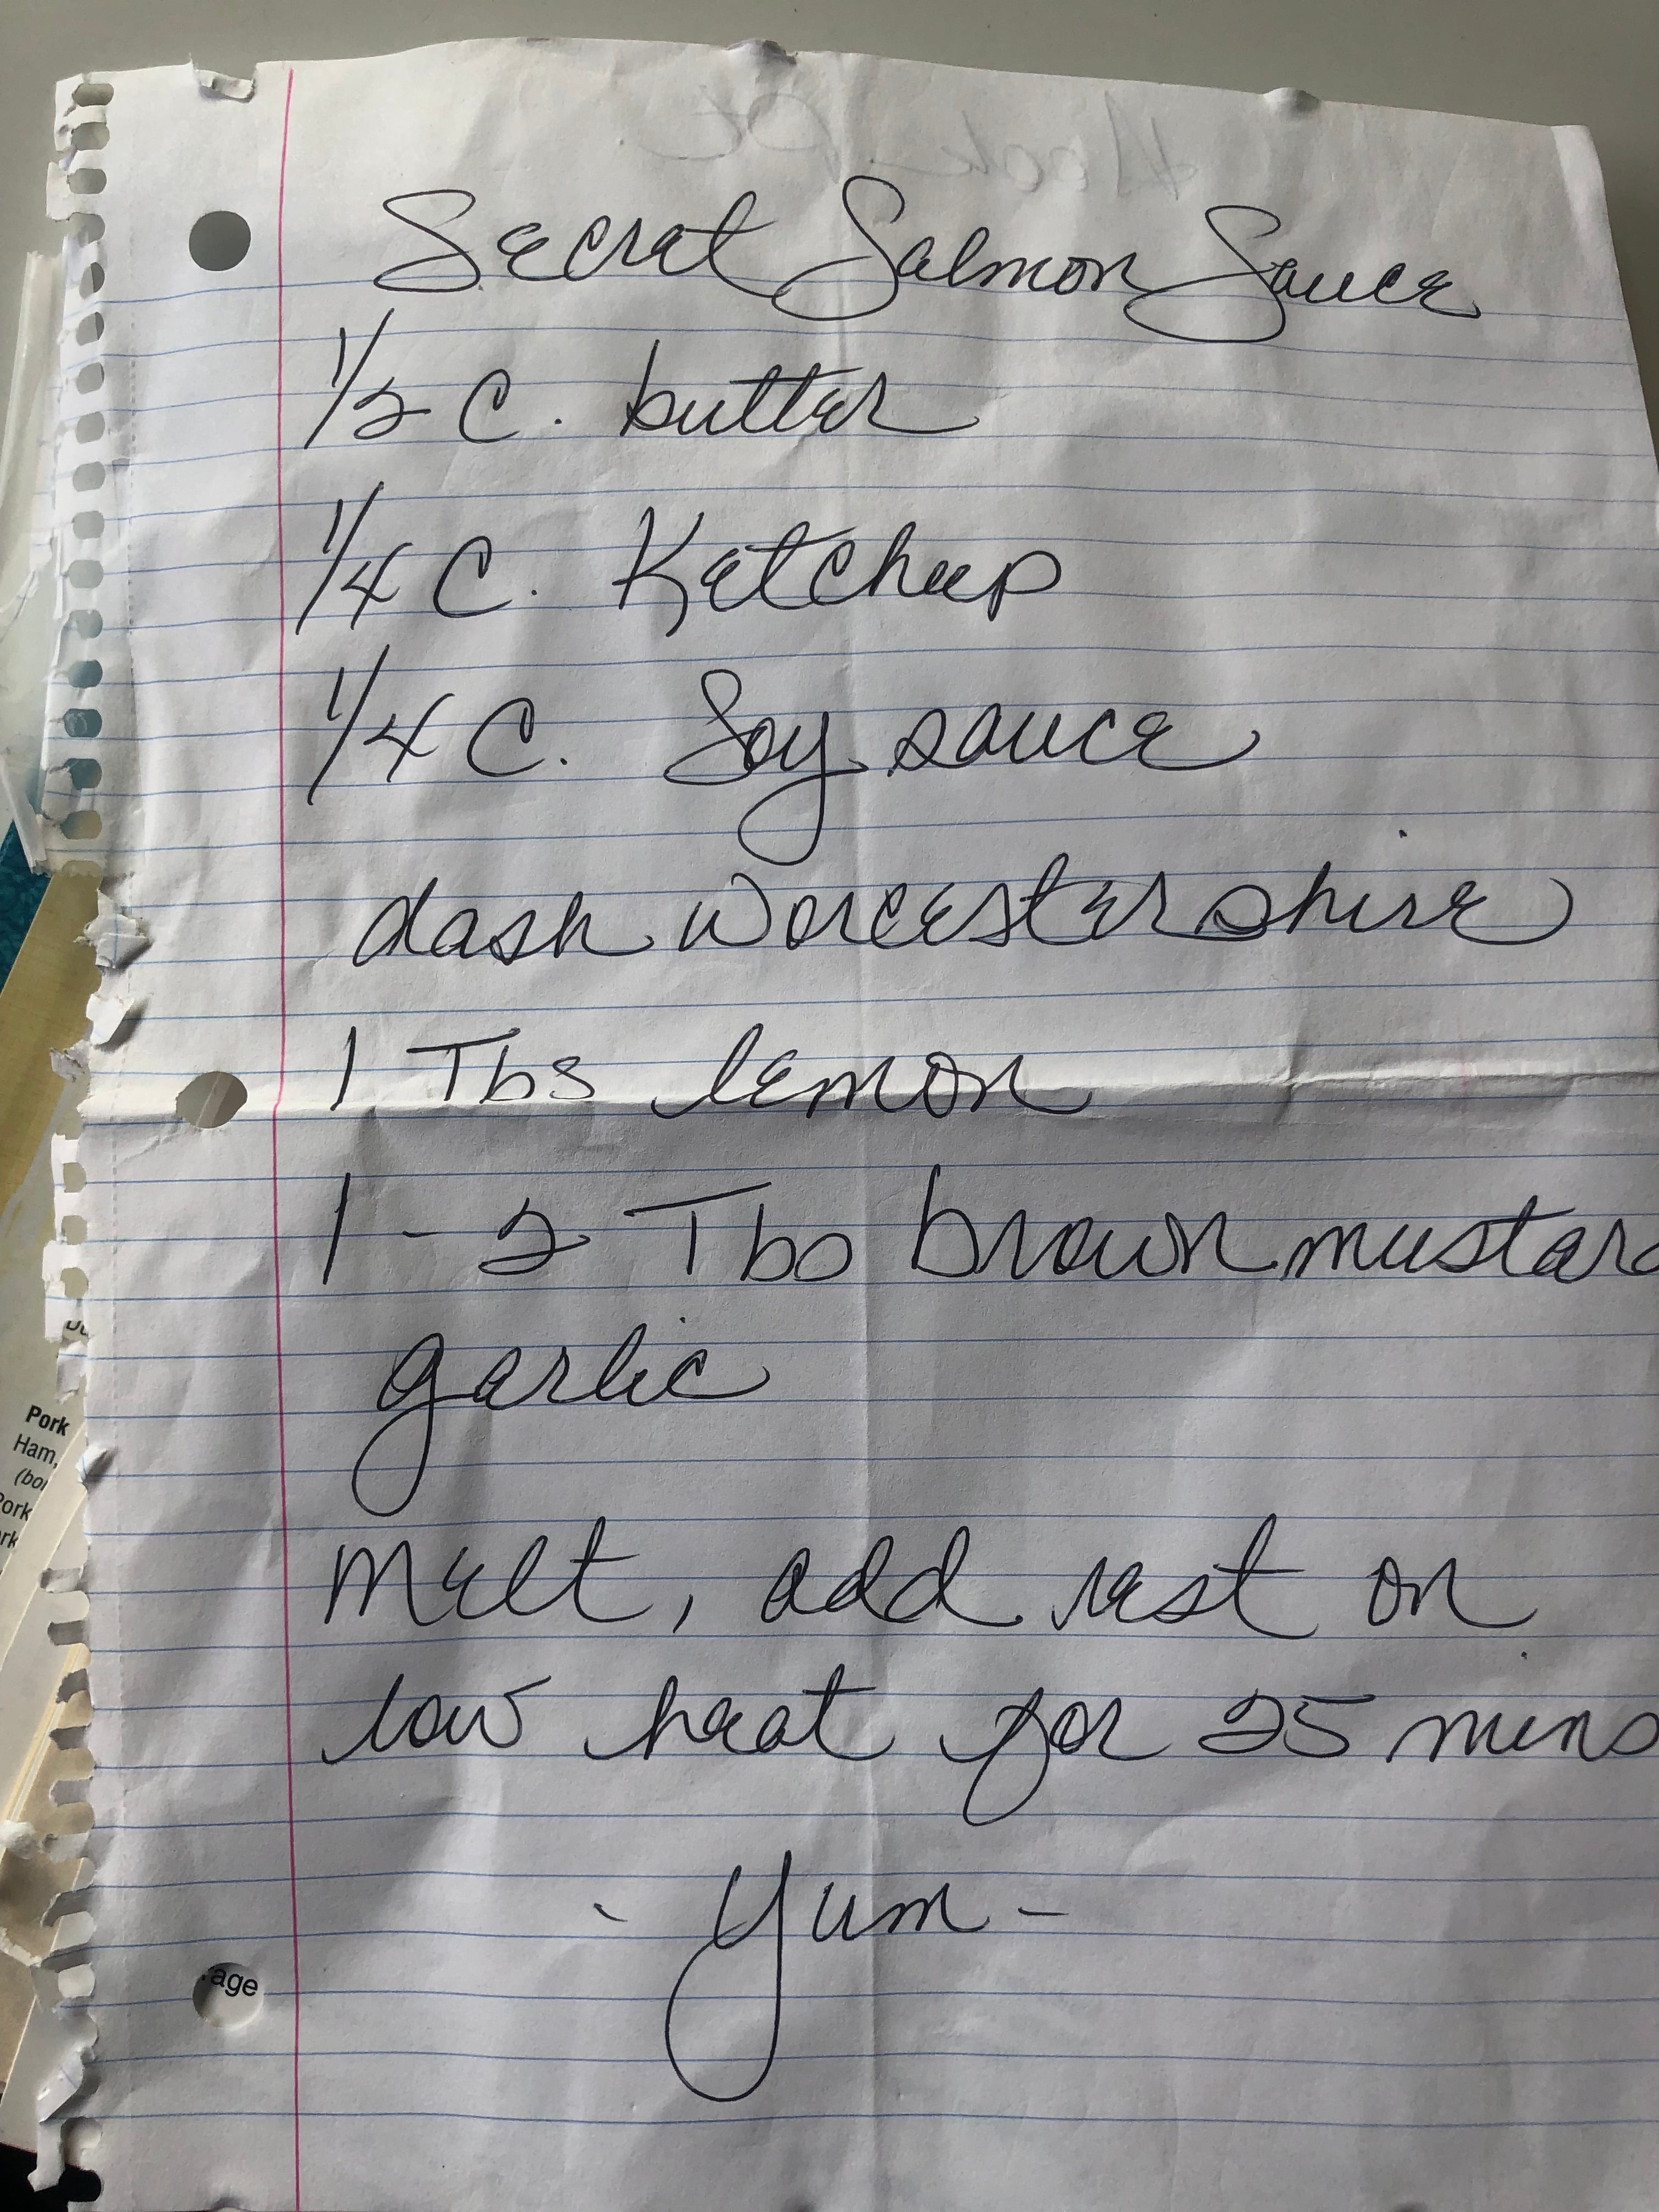 Secret Salmon Sauce
1/2 C. butter
1/4 C. Ketchup
1/4 C. Soy sauce
dash worcestershire
1 Tbs lemon
1-2 Tbs brown mustard
garlic
melt, add rest on
low heat for 25 mins
- Yum -
Pork
Ham,
(bo
Pork
rk
age